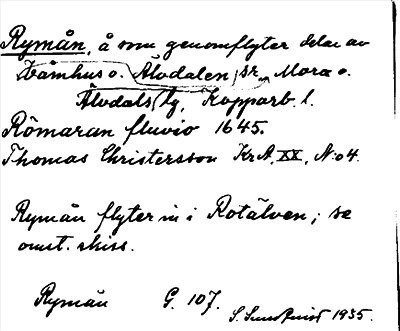 Rymån, å som genomflyter delar av
Våmhus o. Älvdalen, sr., Mora o.
Älvdals tg, Kopparb. l.
Römaran fluvio 1645.
Thomas Christersson KrA, XX, N:o 4.
Rymån flyter in i Rotälven; se
omst. skiss.
Rymån G. 107.
S. Sundquist 1935.